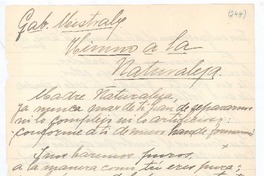 (244)
Gab. Mistral
Himno a la
Naturaleza.
Madre Naturaleza,
ya nunca más de ti han de separarnos
ni lo complejo ni lo artificioso:
conforme a ti hemos han de
Seres haremos puros,
a la manera como tú eres pura;